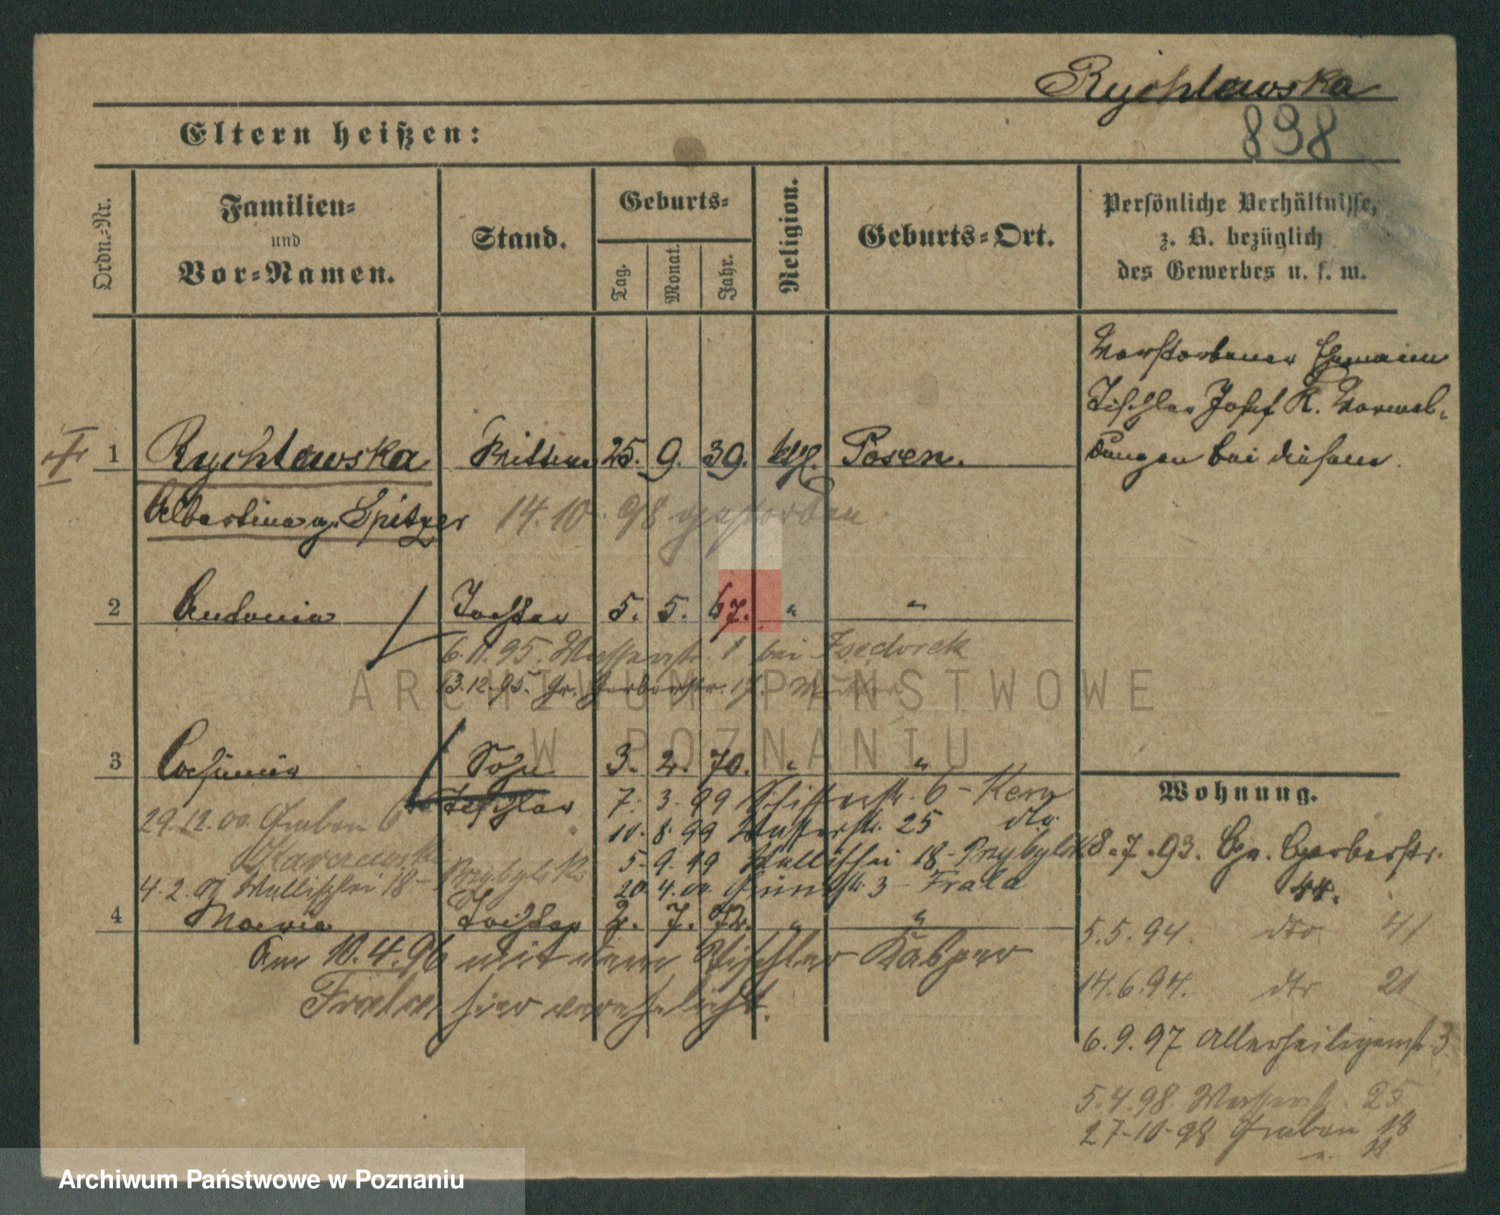 Rychlewska
898
Eltern heißen:
Ordn.-Nr.
Familien-
und
Vor-Namen.
Stand.
Geburts-
Tag.
Monat.
Jahr.
Religion.
Geburts-Ort.
Persönliche Verhältnisse,
z. B. bezüglich
des Gewerbes u. s. w.
Verstorbener Ehemann
Tischler Josef R. Vormel-
dungen bei diesem.
1 Rychlewska 25. 9. 39. Posen.
Albertina g. Spitzer 14.10. 98 gestorben
2 Antonia Tochter 5. 5. 67. " "
6.11.95. Wasserstr. 1 bei
13.12.95. Gr. Gerberstr. 17.
ARCHIWUM PAŃSTWOWE
W POZNANIU
3 Casimir Sohn 3. 2. 70. " "
Tischler 7. 3. 99 Schifferstr. 6 -
29.12.00 Graben 6 10. 8. 99 Wasserstr. 25 dto.
5. 9. 99 Wallischei 18 -
4.2.01 Wallischei 18 - 20. 4. 00 3 -
4 Maria Tochter 2. 7. 72. " "
Am 10.4.96 mit dem Tischler Kasper
hier verehelicht.
Wohnung.
8.7.93. Gr. Gerberstr.
44.
5.5.94. dto 41
14.6.94. dto 21
6.9.97 Allerheiligenstr. 3
5.4.98. Wasserstr. 25
27-10-98 Graben 18
Archiwum Państwowe w Poznaniu